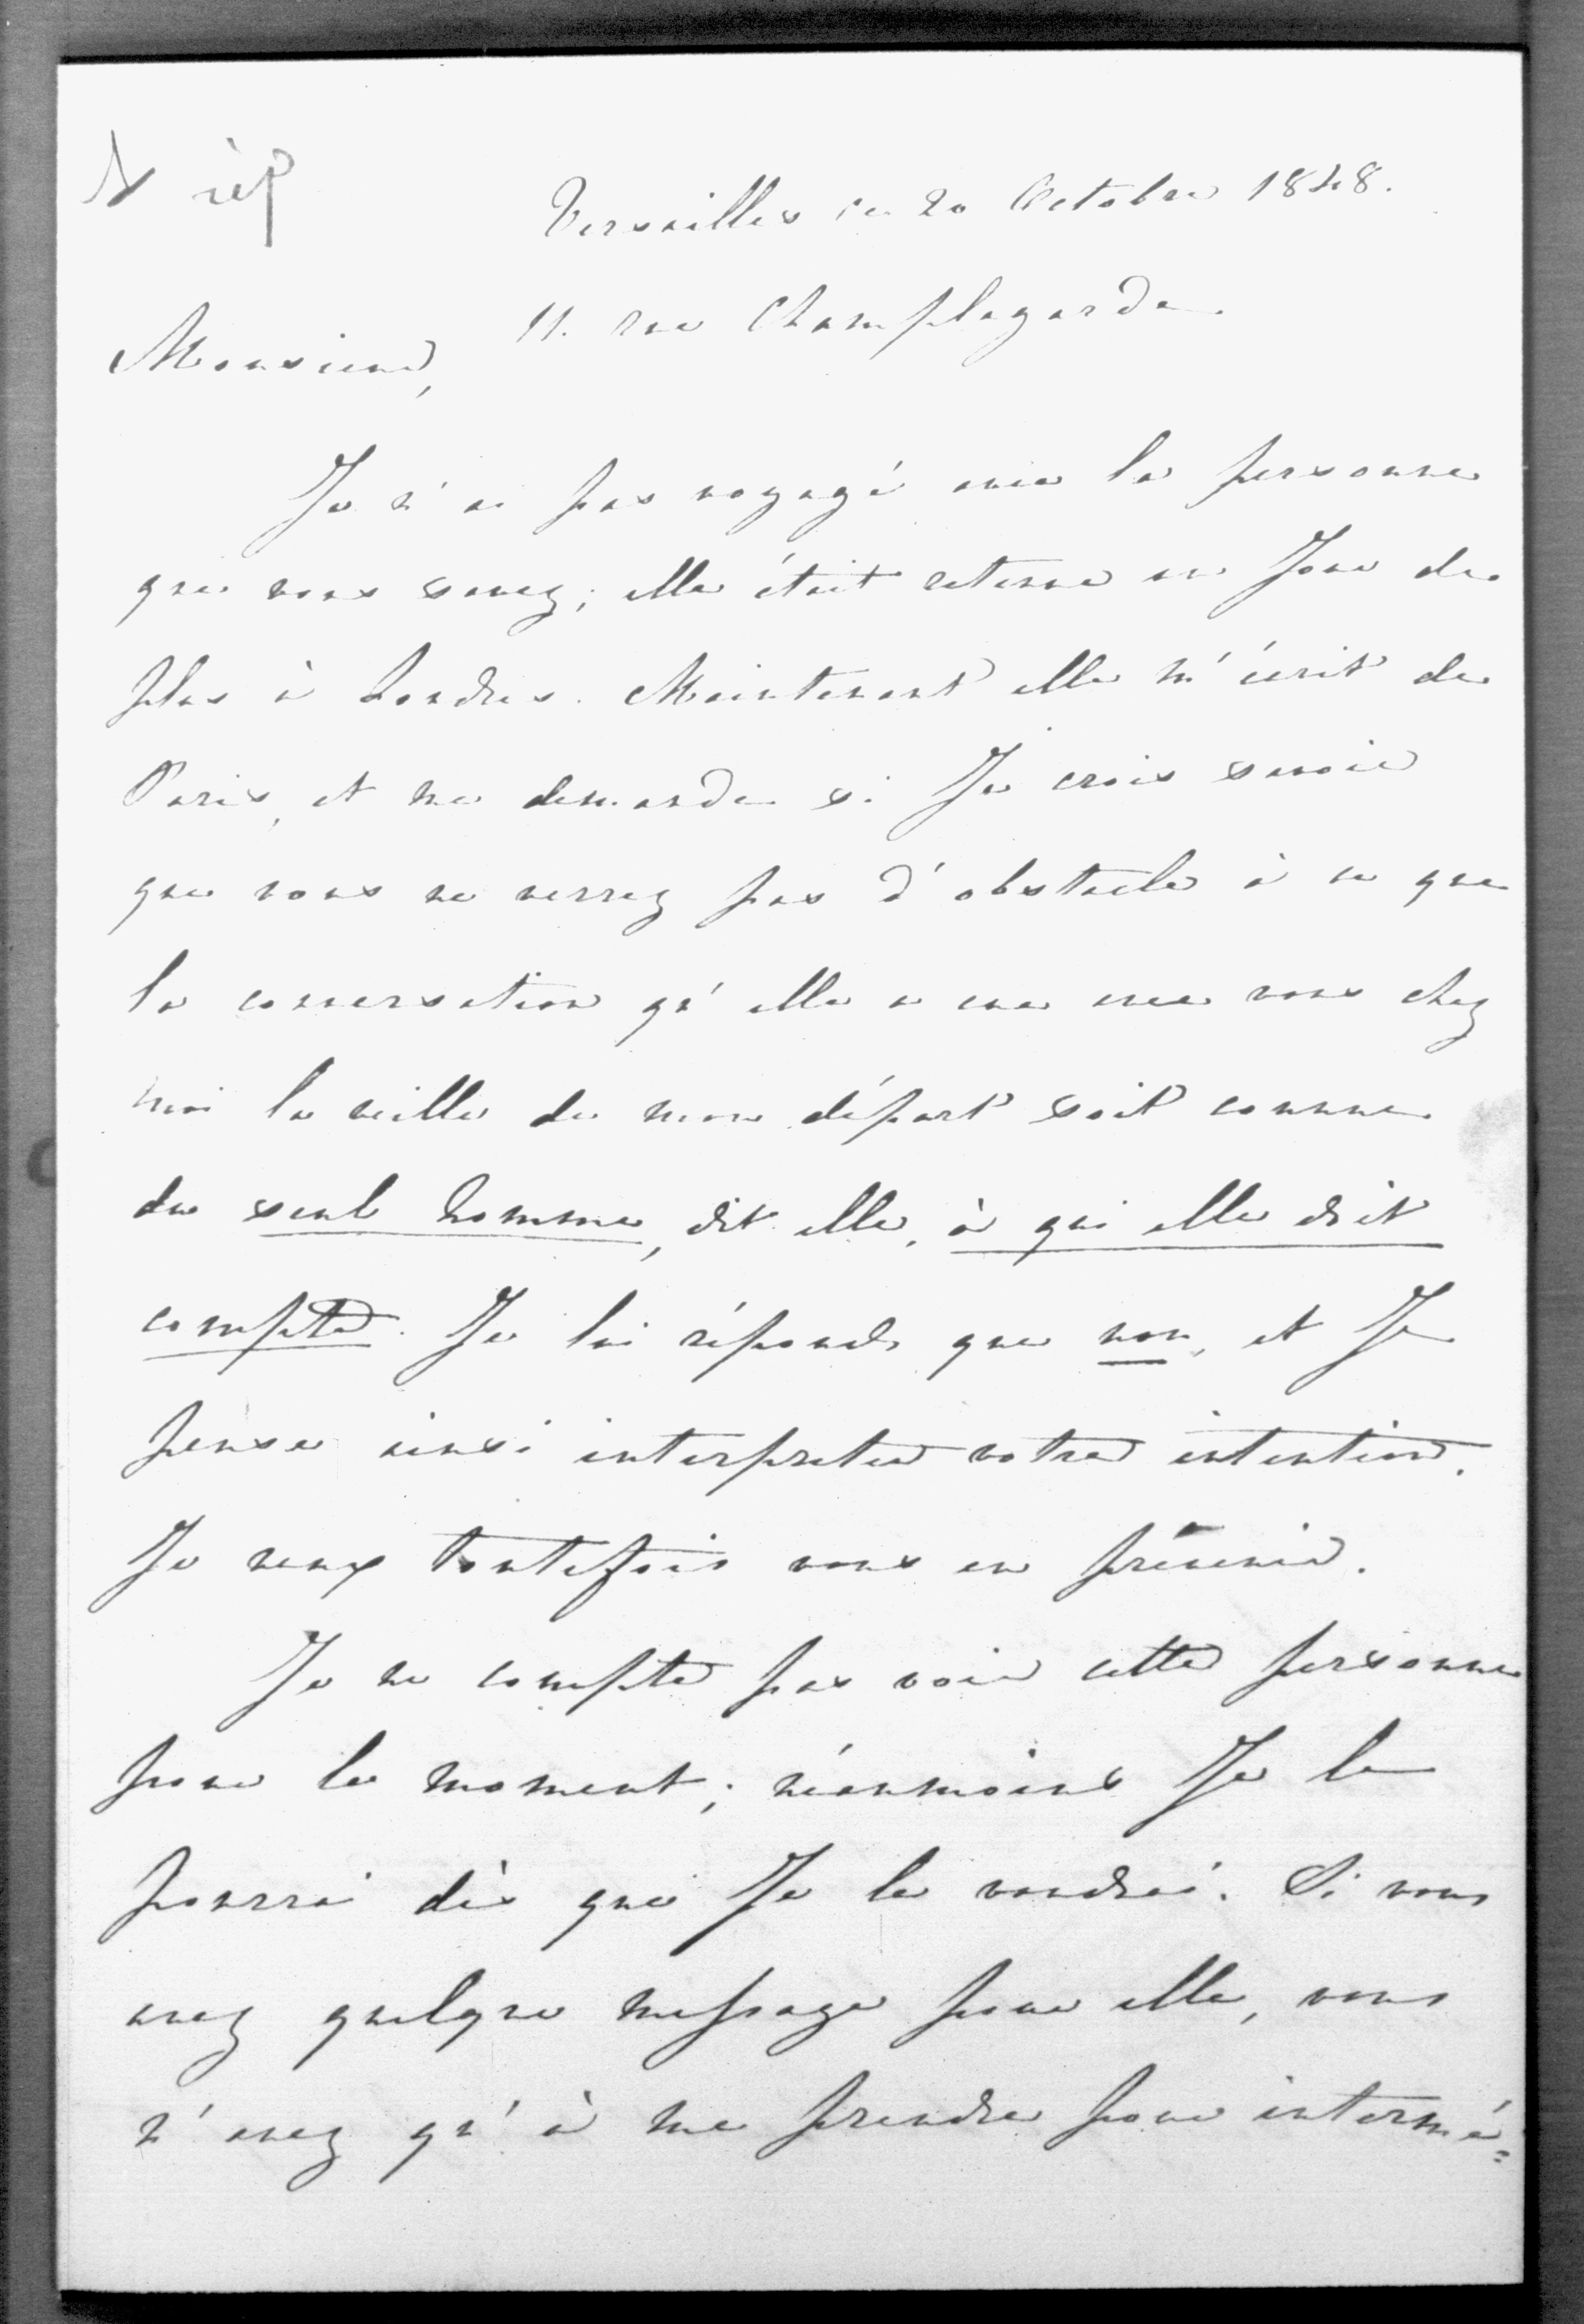 rép
Versailles ce 20 Octobre 1848.
11. rue Champlagarde.
Monsieur,
Je n'ai pas voyagé avec la personne
que vous savez; elle était retenue un Jour de
plus à Londres. Maintenant elle m'écrit de
Paris, et me demande si Je crois savoir
que vous ne verrez pas d'obstacle à ce que
la conversation qu'elle a eue avec vous chez
moi la veille de mon départ soit connue
du seul homme, dit elle, à qui elle doit
compte. Je lui réponds que non, et Je
pense ainsi interpreter votre intention.
Je veux toutefois vous en prévenir.
Je ne compte pas voir cette personne
pour le moment; néanmoins Je le
pourrai dès que Je le voudrai. Si vous
avez quelque message pour elle, vous
n'avez qu'à me prendre pour intermé=